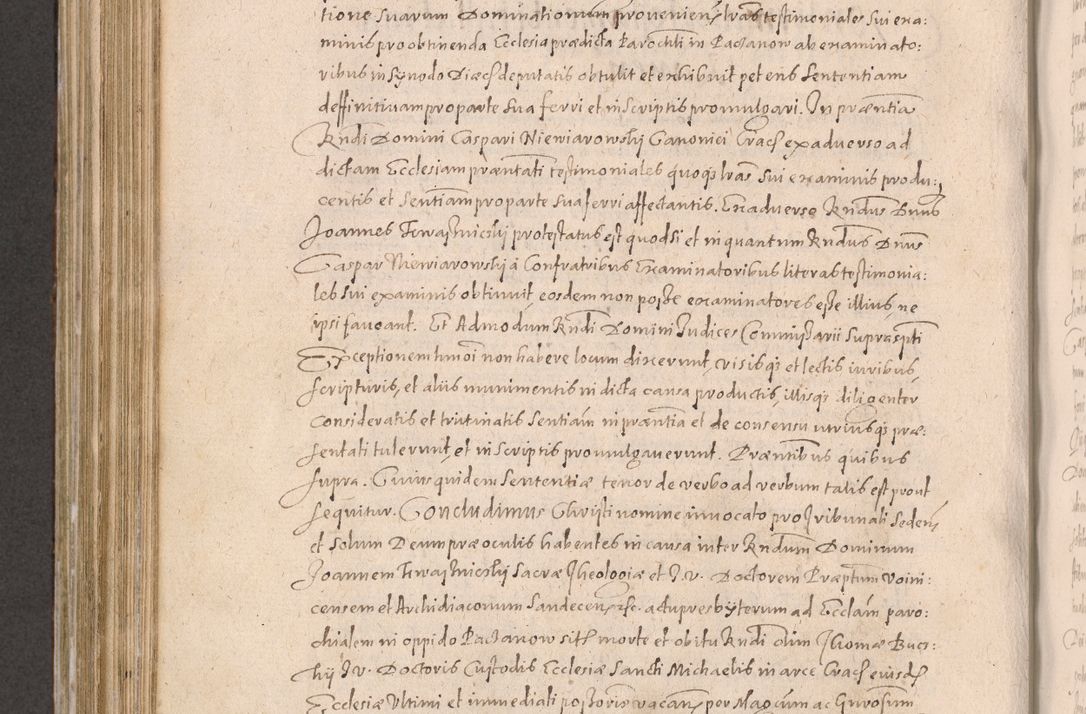 tione suarum Dominationum provenien. lras testimoniales sui exa:
minis pro obtinenda Ecclesia prædicta Parochli in Paczanow ab examinato:
ribus in synodo Diæces deputatis obtulit et exhibuit petens sententiam
deffinitivam pro parte sua ferri et in scriptis promulgari. In præntia
Rndi Domini Caspari Niewiarowskij Canonici Cracs ex adverso ad
dictam Ecclesiam præntati testimoniales quoqs lras sui examinis produ:
centis et sentiam pro parte sua ferri affectantis. Ex adverso Rndus Dnus
Joannes protestatus est quod si et in quantum Rndus Dnus
Caspar Niewiarowskij à Confratribus Examinatoribus literas testimonia:
les sui examinis obtinuit, eosdem non posse examinatores esse illius, ne
ipsi faveant. Et Admodum Rndi Domini Judices Commissarii suprascpti
Exceptionem hmoi non habere locum dixerunt, visisqs et lectis iuribus,
scripturis, et aliis munimentis in dicta causa productis, illisqs diligenter
consideratis et trutinatis sentiam in præntia et de consensu utriusqs præ:
sentati tulerunt, et in scriptis promulgaverunt. Præntibus quibus
supra. Cuius quidem sententiæ tenor de verbo ad verbum talis est prout
sequitur. Concludimus Christi nomine invocato pro Tribunali seden.
et solum Deum præ oculis habentes in causa inter Rndum Dominum
Joannem sacræ Theologiæ et J. V. Doctorem Præptum Voini:
censem et Archidiaconum Sandecen. etc. actu presbyterum ad Ecclam paro:
chialem in oppido Paczanow sit. morte et obitu Rndi olim Thomæ Bucs:
kij J. V. Doctoris Custodis Ecclesiæ Sancti Michaelis in arce Cracs eiusd.
Ecclesiæ Ultimi et immediati possoris vacan. per Magcum ac Gnrosum